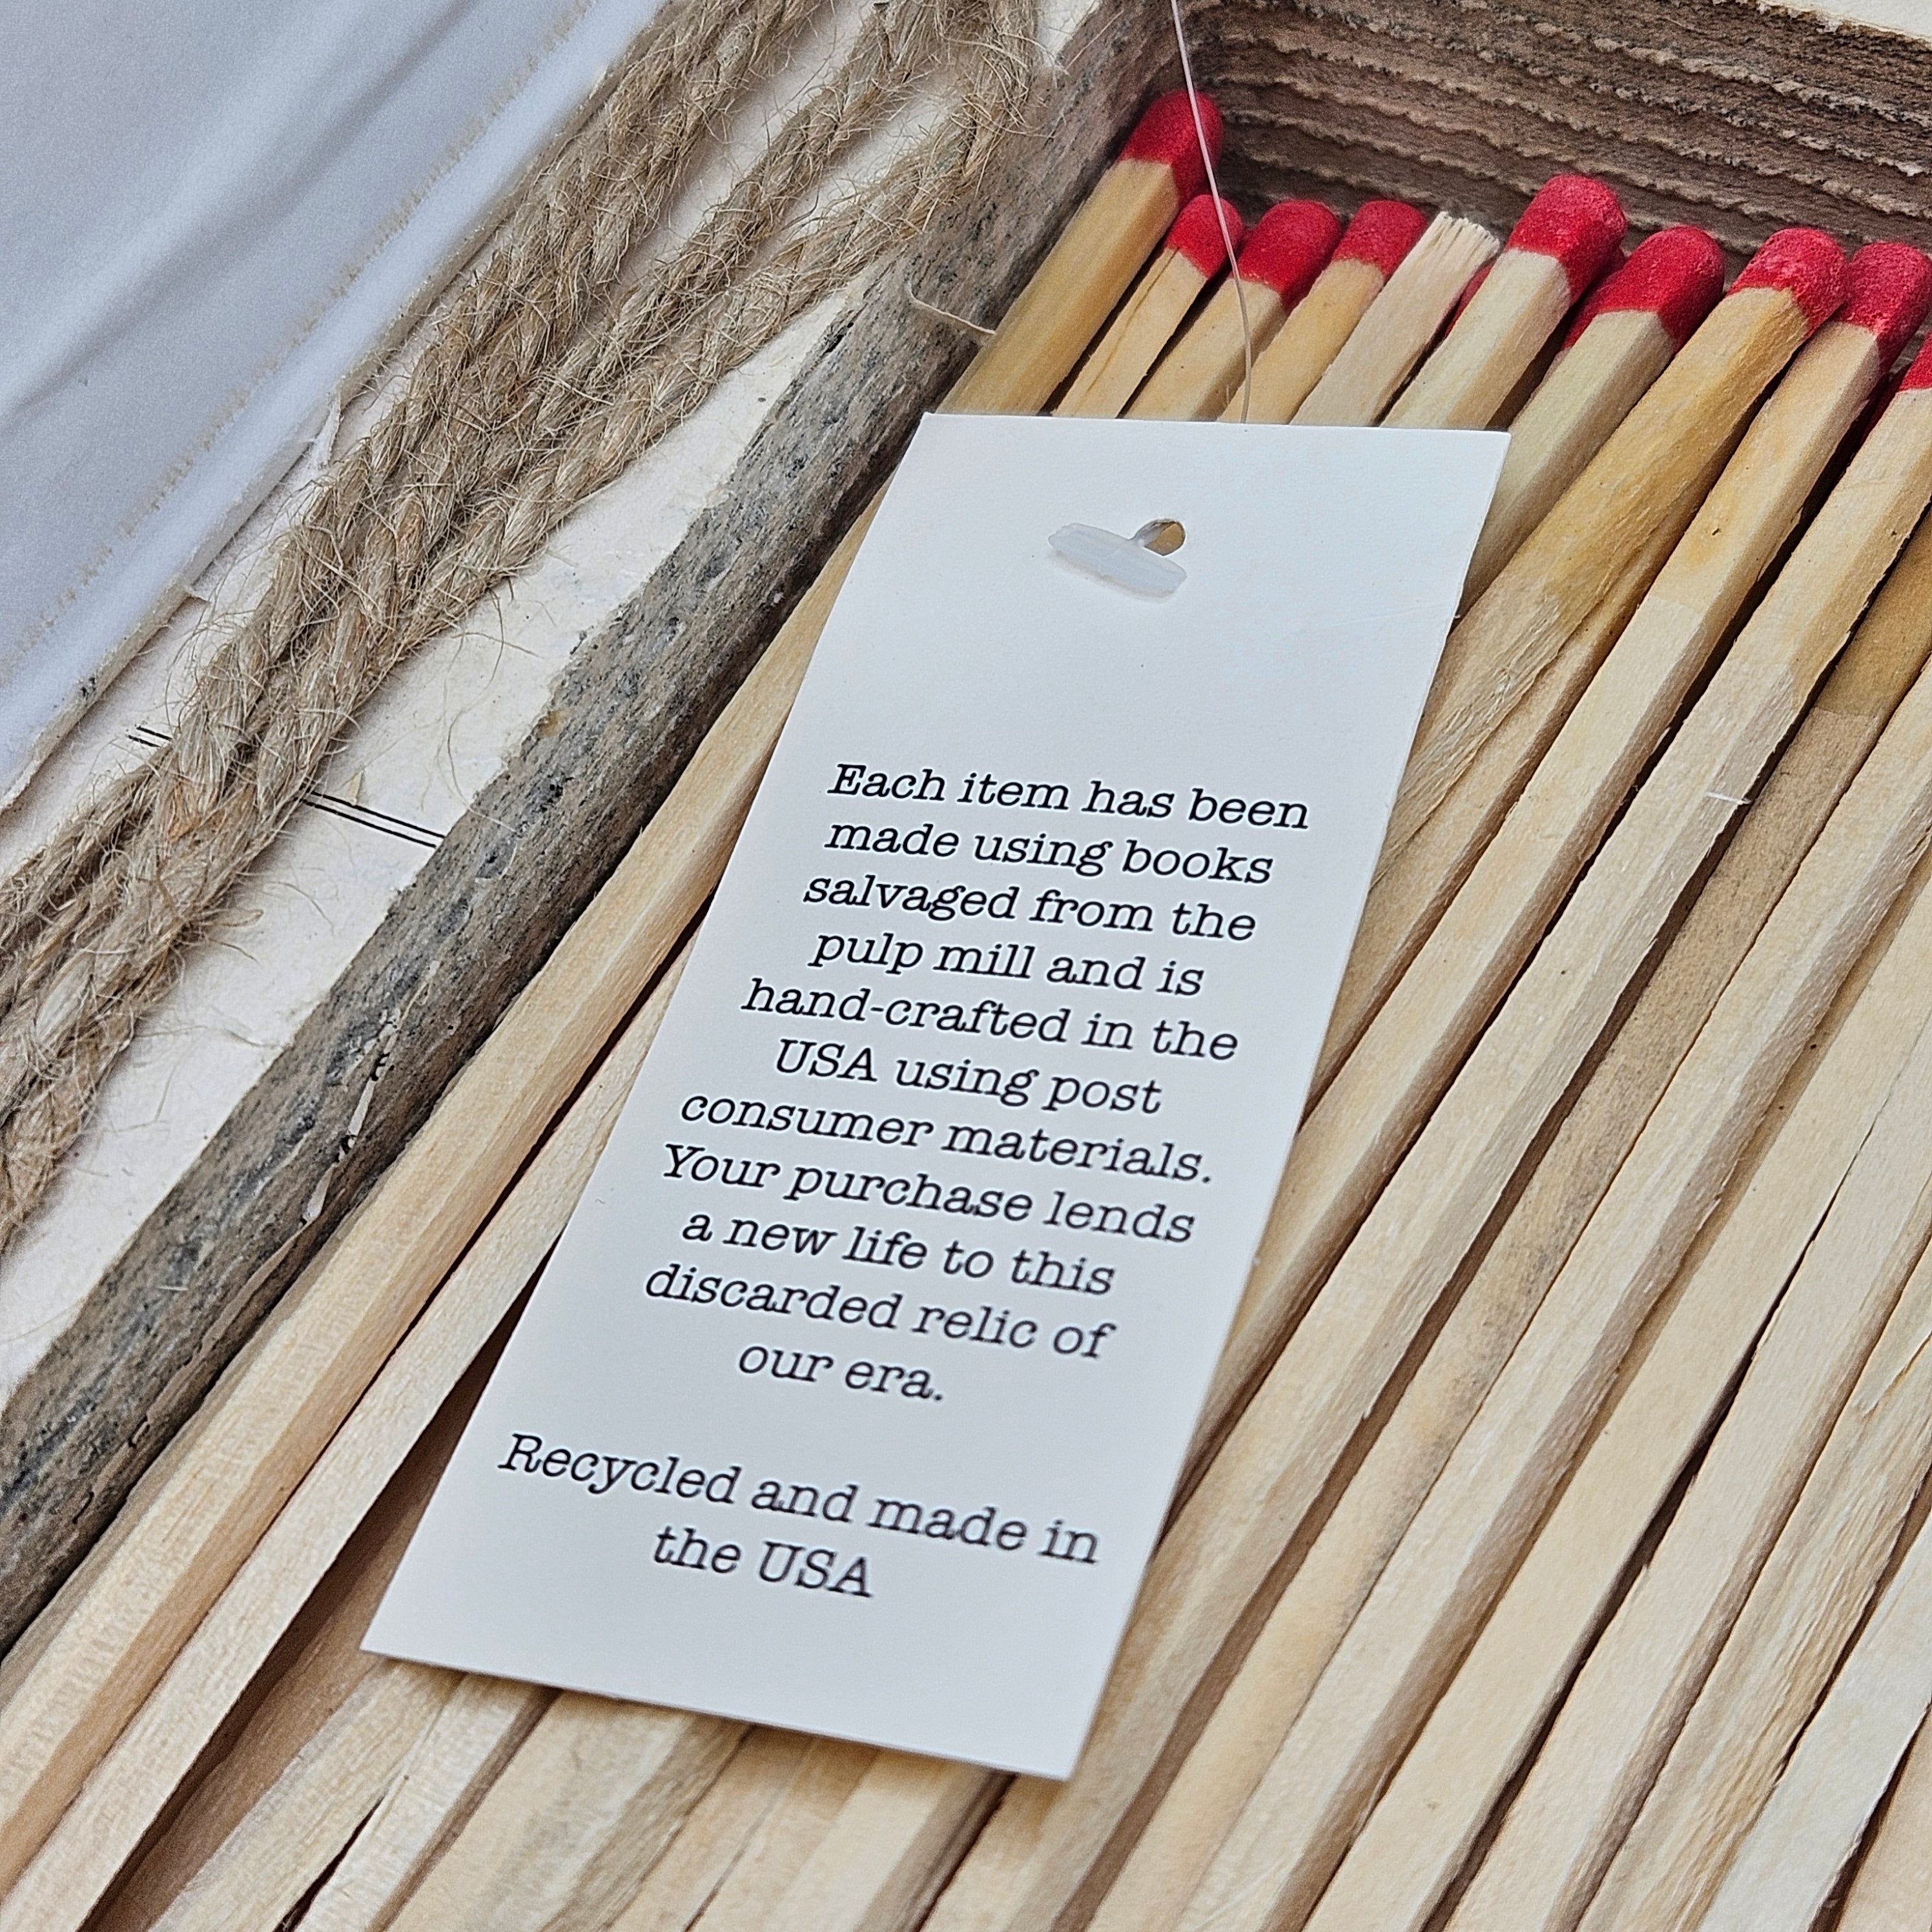 Each item has been
made using books
salvaged from the
pulp mill and is
hand-crafted in the
USA using post
consumer materials.
Your purchase lends
a new life to this
discarded relic of
our era.
Recycled and made in
the USA